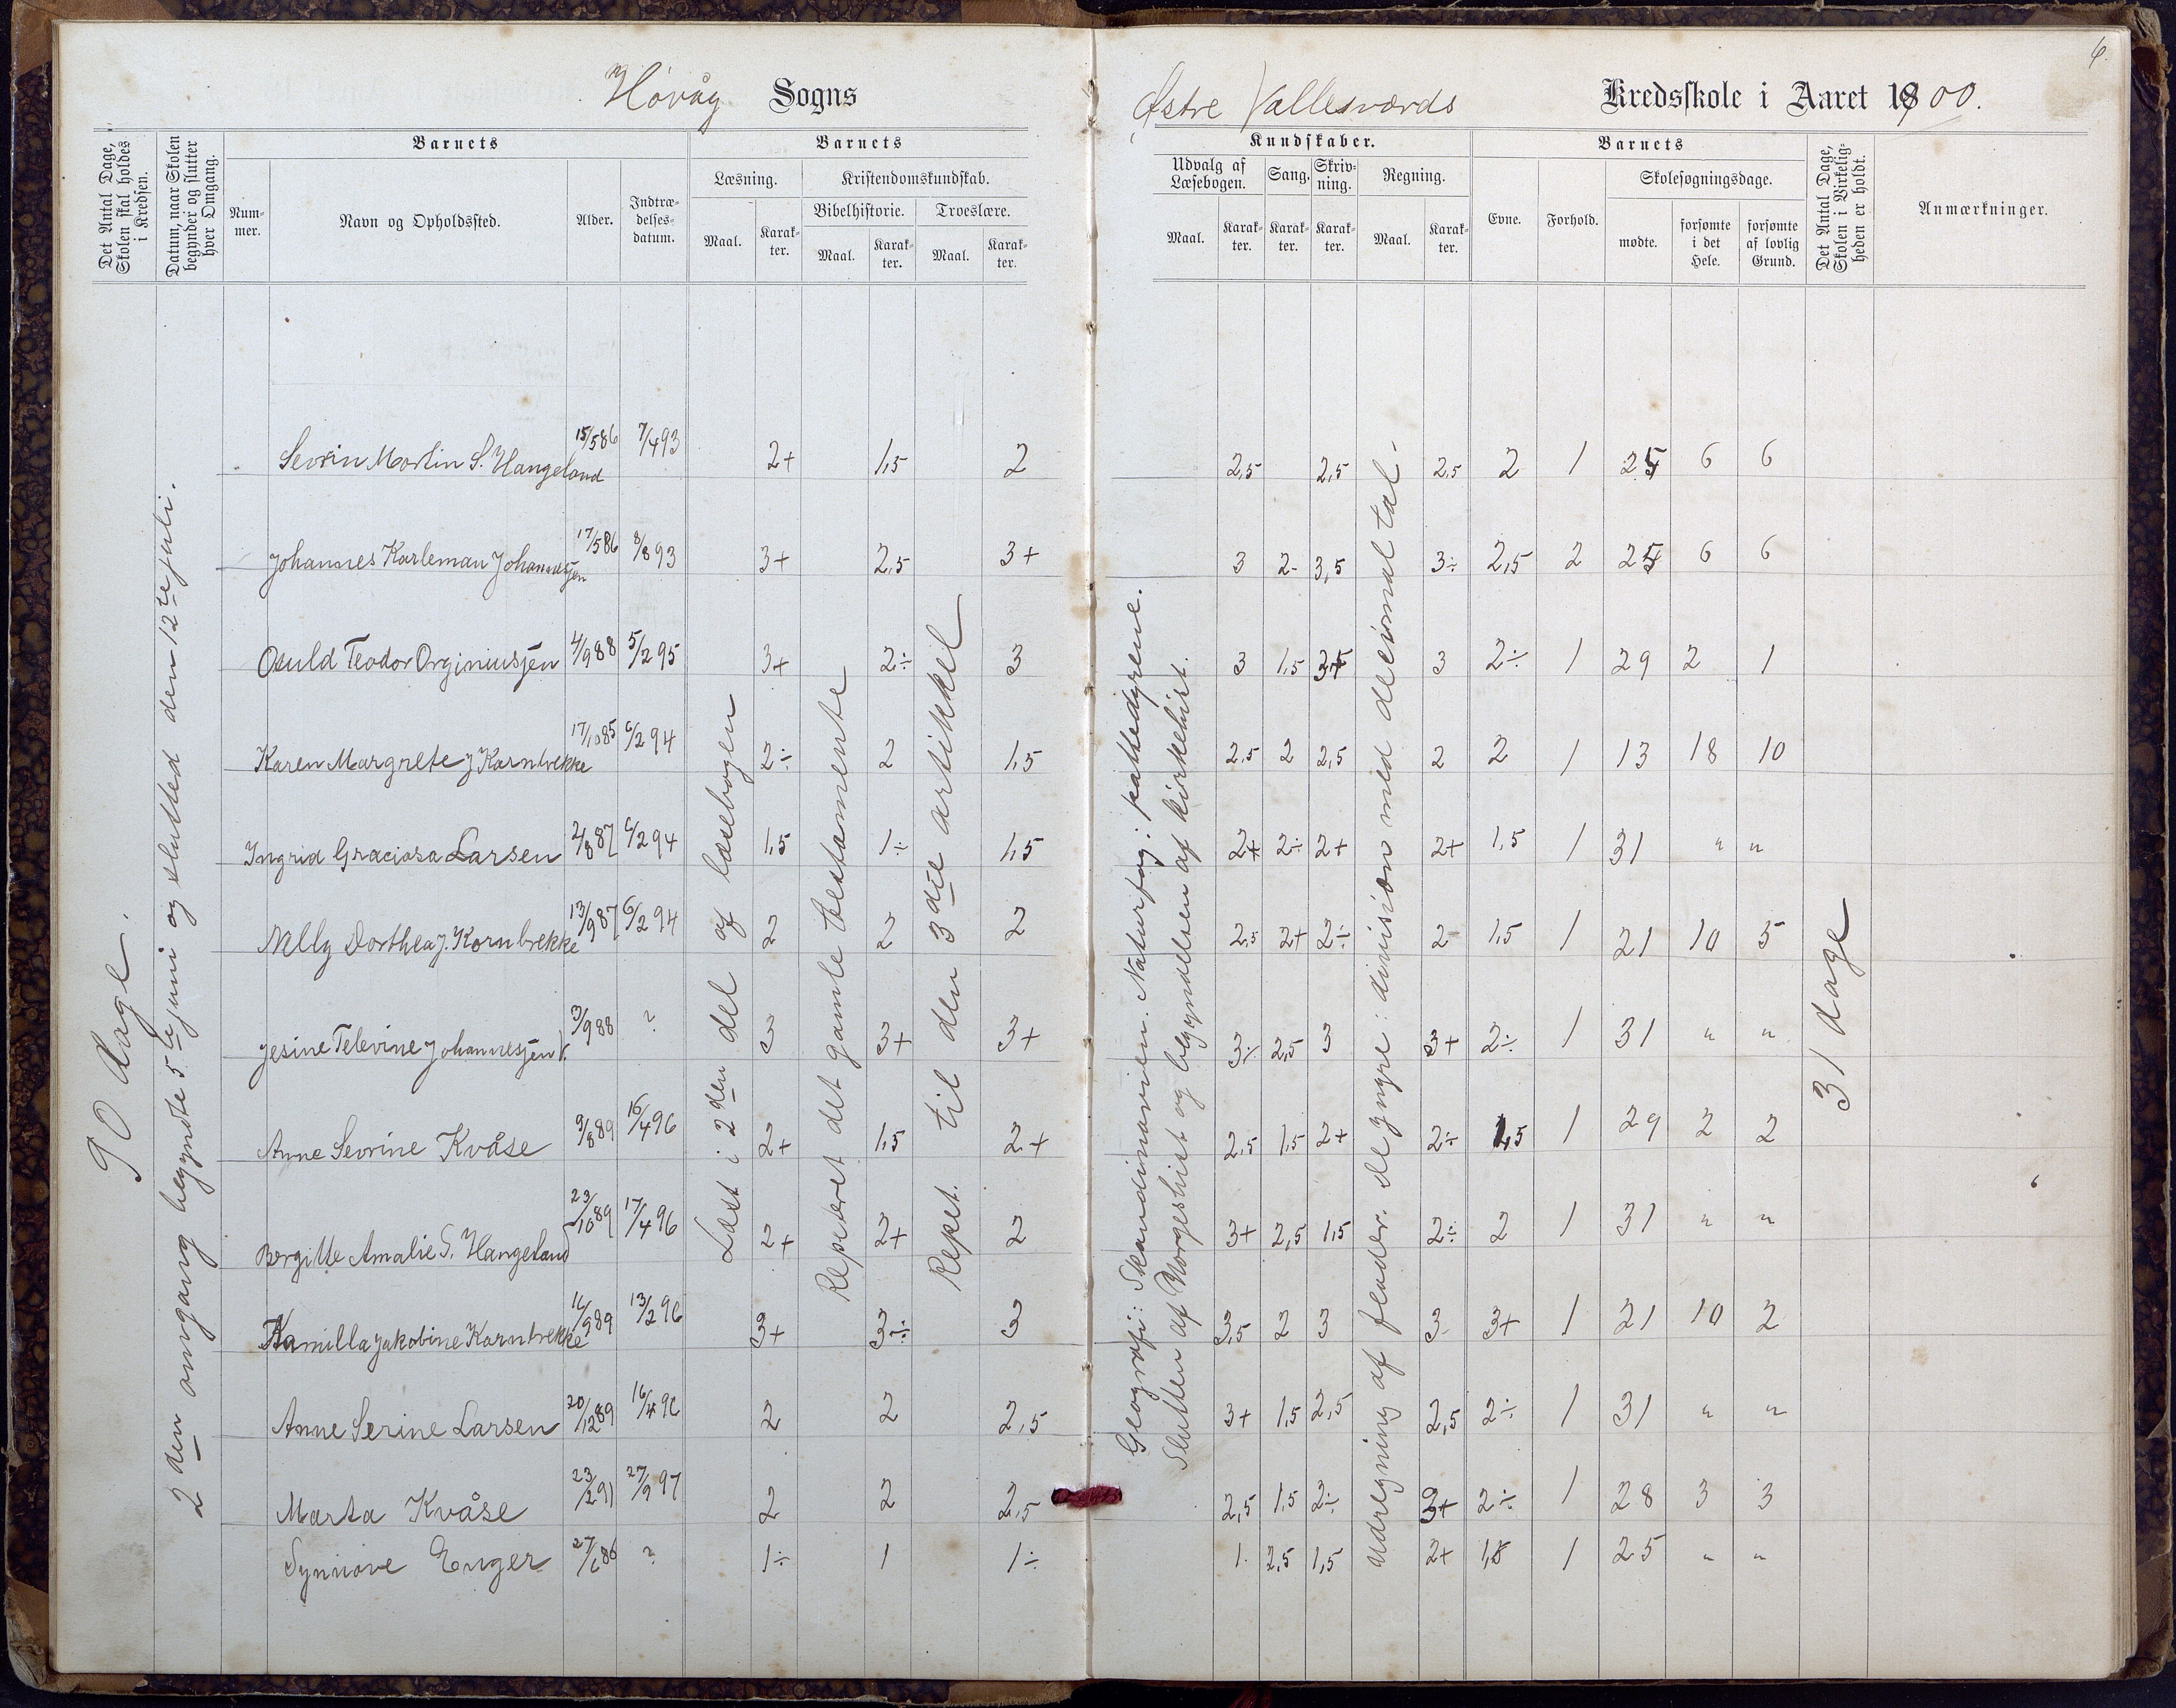 6.
Høvåg Sogns
Østre Vallesværds Kredsskole i Aaret 1900.
Det Antal Dage, Skolen skal holdes i Kredsen.
Datum, naar Skolen begynder og slutter hver Omgang.
Barnets
Barnets
Kundskaber.
Barnets
Det Antal Dage, Skolen i Virkeligheden er holdt.
Anmærkninger.
Nummer.
Navn og Opholdssted.
Alder.
Indtrædelsesdatum.
Læsning.
Kristendomskundskab.
Bibelhistorie.
Troeslære.
Maal.
Karakter.
Maal.
Karakter.
Maal.
Karakter.
Udvalg af Læsebogen.
Sang.
Skrivning.
Regning.
Maal.
Karakter.
Karakter.
Karakter.
Maal.
Karakter.
Evne.
Forhold.
Skolesøgningsdage.
mødte.
forsømte i det Hele.
forsømte af lovlig Grund.
90 dage.
2den omgang begyndte 5te juni og slutted den 12te juli.
Læst i 2den del af læsebogen
Repeteret det gamle testamente
Repet. til den 3die artikkel
Geografi: Skandinavien. Naturfag: pattedyrene.
Slutten af Norgeshist og begyndelsen af kirkehist.
Udregning af flader. De yngre: division med decimaltal.
31 dage
Sevrin Martin S. Hangeland 15/5 86 7/4 93 2+ 1,5 2 2,5 2,5 2,5 2 1 25 6 6
Johannes Karleman Johannesjen 17/5 86 8/8 93 3+ 2,5 3+ 3 2- 3,5 3÷ 2,5 2 25 6 6
Osuld Teodor Orginiusjen 4/9 88 5/2 95 3+ 2÷ 3 3 1,5 3+ 3 2÷ 1 29 2 1
Karen Margrete J Kornbrekke 17/10 85 6/2 94 2÷ 2 1,5 2,5 2 2,5 2 2 1 13 18 10
Ingrid Graciosa Larsen 2/8 87 6/2 94 1,5 1÷ 1,5 2+ 2÷ 2+ 2+ 1,5 1 31 " "
Nelly Dorthea J. Kornbrekke 13/9 87 6/2 94 2 2 2 2,5 2+ 2÷ 2- 1,5 1 21 10 5
Jesine Televine Johannesjen V. 3/9 88 ? 3 3+ 3+ 3÷ 2,5 3 3+ 2÷ 1 31 " "
Anne Sevrine Kvåse 9/8 89 16/4 96 2+ 1,5 2+ 2,5 1,5 2+ 2÷ 1,5 1 29 2 2
Bergitte Amalie S. Hangeland 23/10 89 17/4 96 2+ 2+ 2 3+ 2,5 1,5 2÷ 2 1 31 " "
Kamilla Jakobine Kornbrekke 16/9 89 13/2 96 3+ 3÷ 3 3,5 2 3 3 3+ 1 21 10 2
Anne Serine Larsen 20/12 89 16/4 96 2 2 2,5 3+ 1,5 2,5 2,5 2÷ 1 31 " "
Marta Kvåse 23/2 91 27/9 97 2 2 2,5 2,5 1,5 2÷ 3+ 2÷ 1 28 3 3
Synnøve Enger 27/6 86 ? 1÷ 1 1÷ 1 2,5 1,5 2+ 1,8 1 25 " "